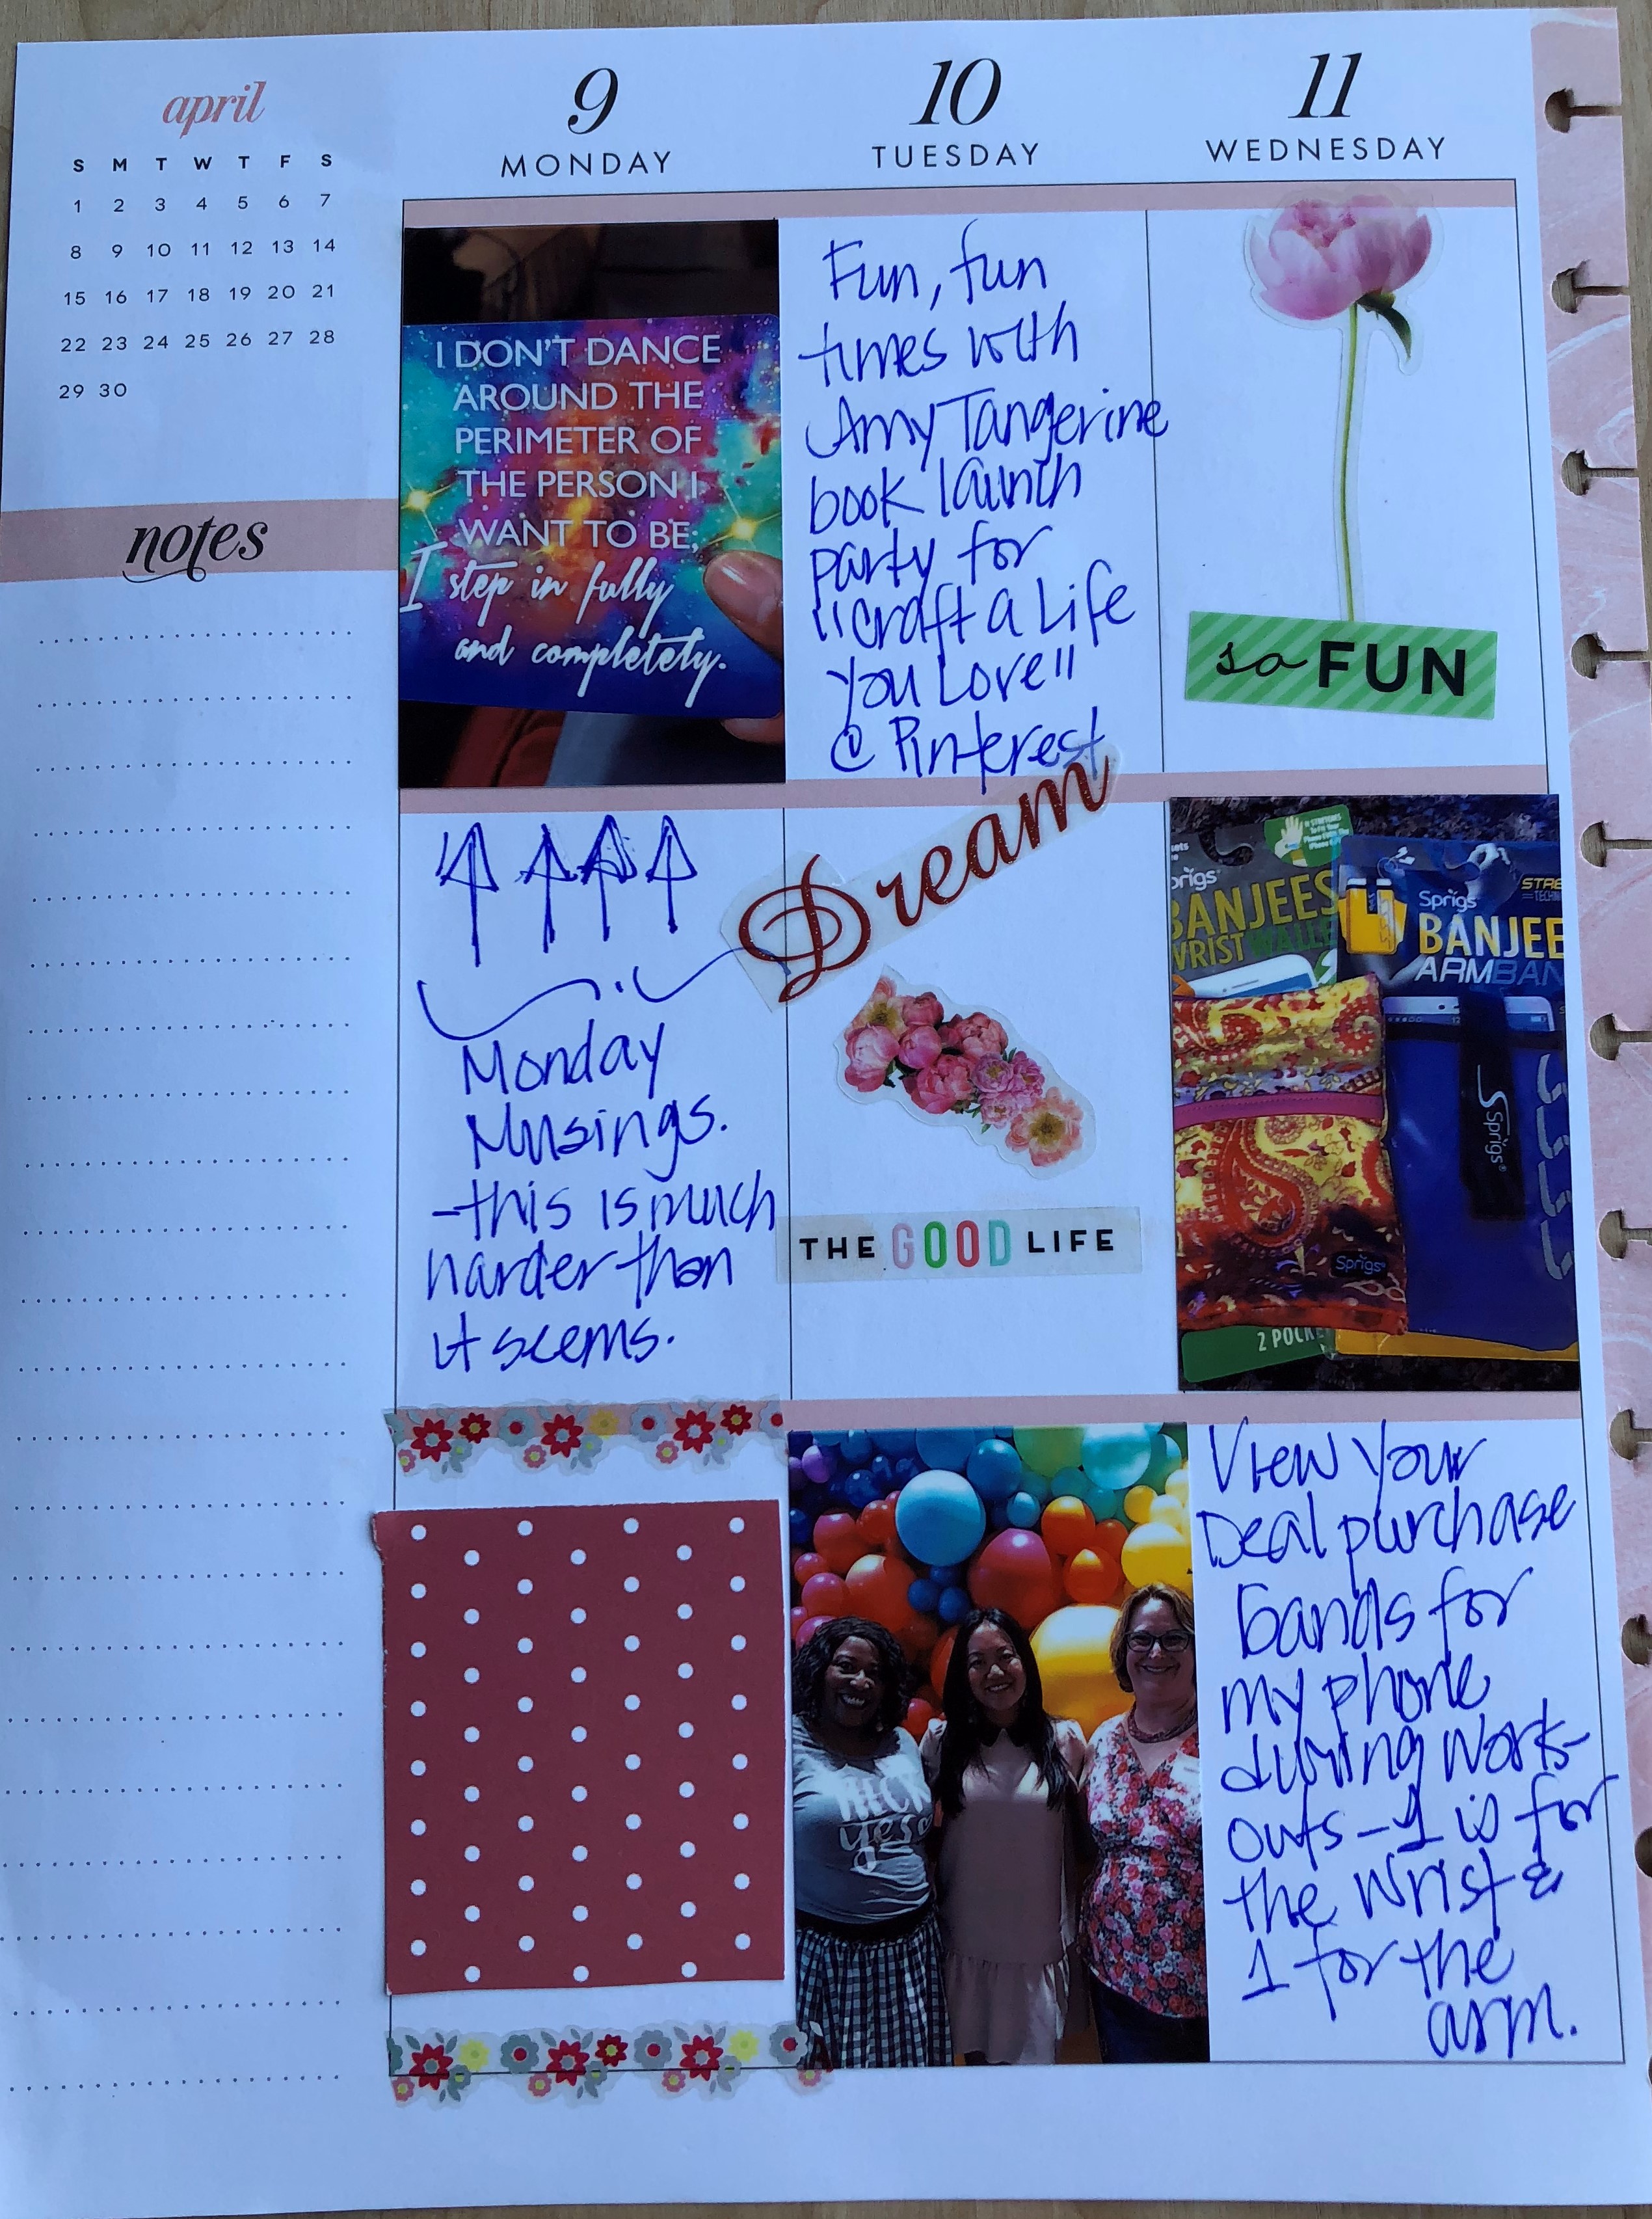 april
S M T W T F S
1 2 3 4 5 6 7
8 9 10 11 12 13 14
15 16 17 18 19 20 21
22 23 24 25 26 27 28
29 30
notes
9
MONDAY
I DON'T DANCE
AROUND THE
PERIMETER OF
THE PERSON I
WANT TO BE;
I step in fully
and completely.
Monday
Musings.
-this is much
harder than
it seems.
10
TUESDAY
Fun, fun
times with
Amy Tangerine
book launch
party for
"Craft a Life
You Love"
@ Pinterest
Dream
THE GOOD LIFE
HECK
yes
11
WEDNESDAY
so FUN
Sprigs
BANJEES
WRIST WALLE
2 POCKE
Sprigs
STRE
BANJEE
ARMBAN
Sprigs
Sprigs
View Your
Deal purchase
bands for
my phone
during work-
outs - 1 is for
the wrist &
1 for the
arm.